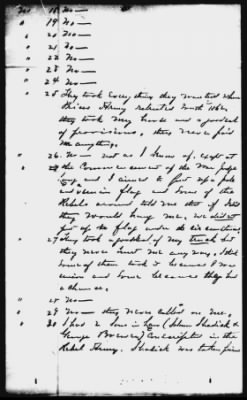 No 18. No—
" 19. No—
" 20 No—
" 21. No—
" 22 No—
" 23 No—
" 24 No—
" 25 They took everything they wanted when
Army retreated
they took my and a good deal
of provisions. they never paid
me anything.
" 26. No— not as I know of, except at
the commencement of the War
and I aimed to put up a pole
and Union flag and some of the
Rebels around told me that if I did
they would hang me, we did not
put up the flag under the circumstances
" 27 They took a good deal of my truck but
they never hurt me any way, I think
some of them took it because I was
union and some because they had
a chance.
" 28 No—
" 29 No— they never called on me.
" 30 I had 2 Sons in Law
George conscripted in the
Rebel Army. was taken